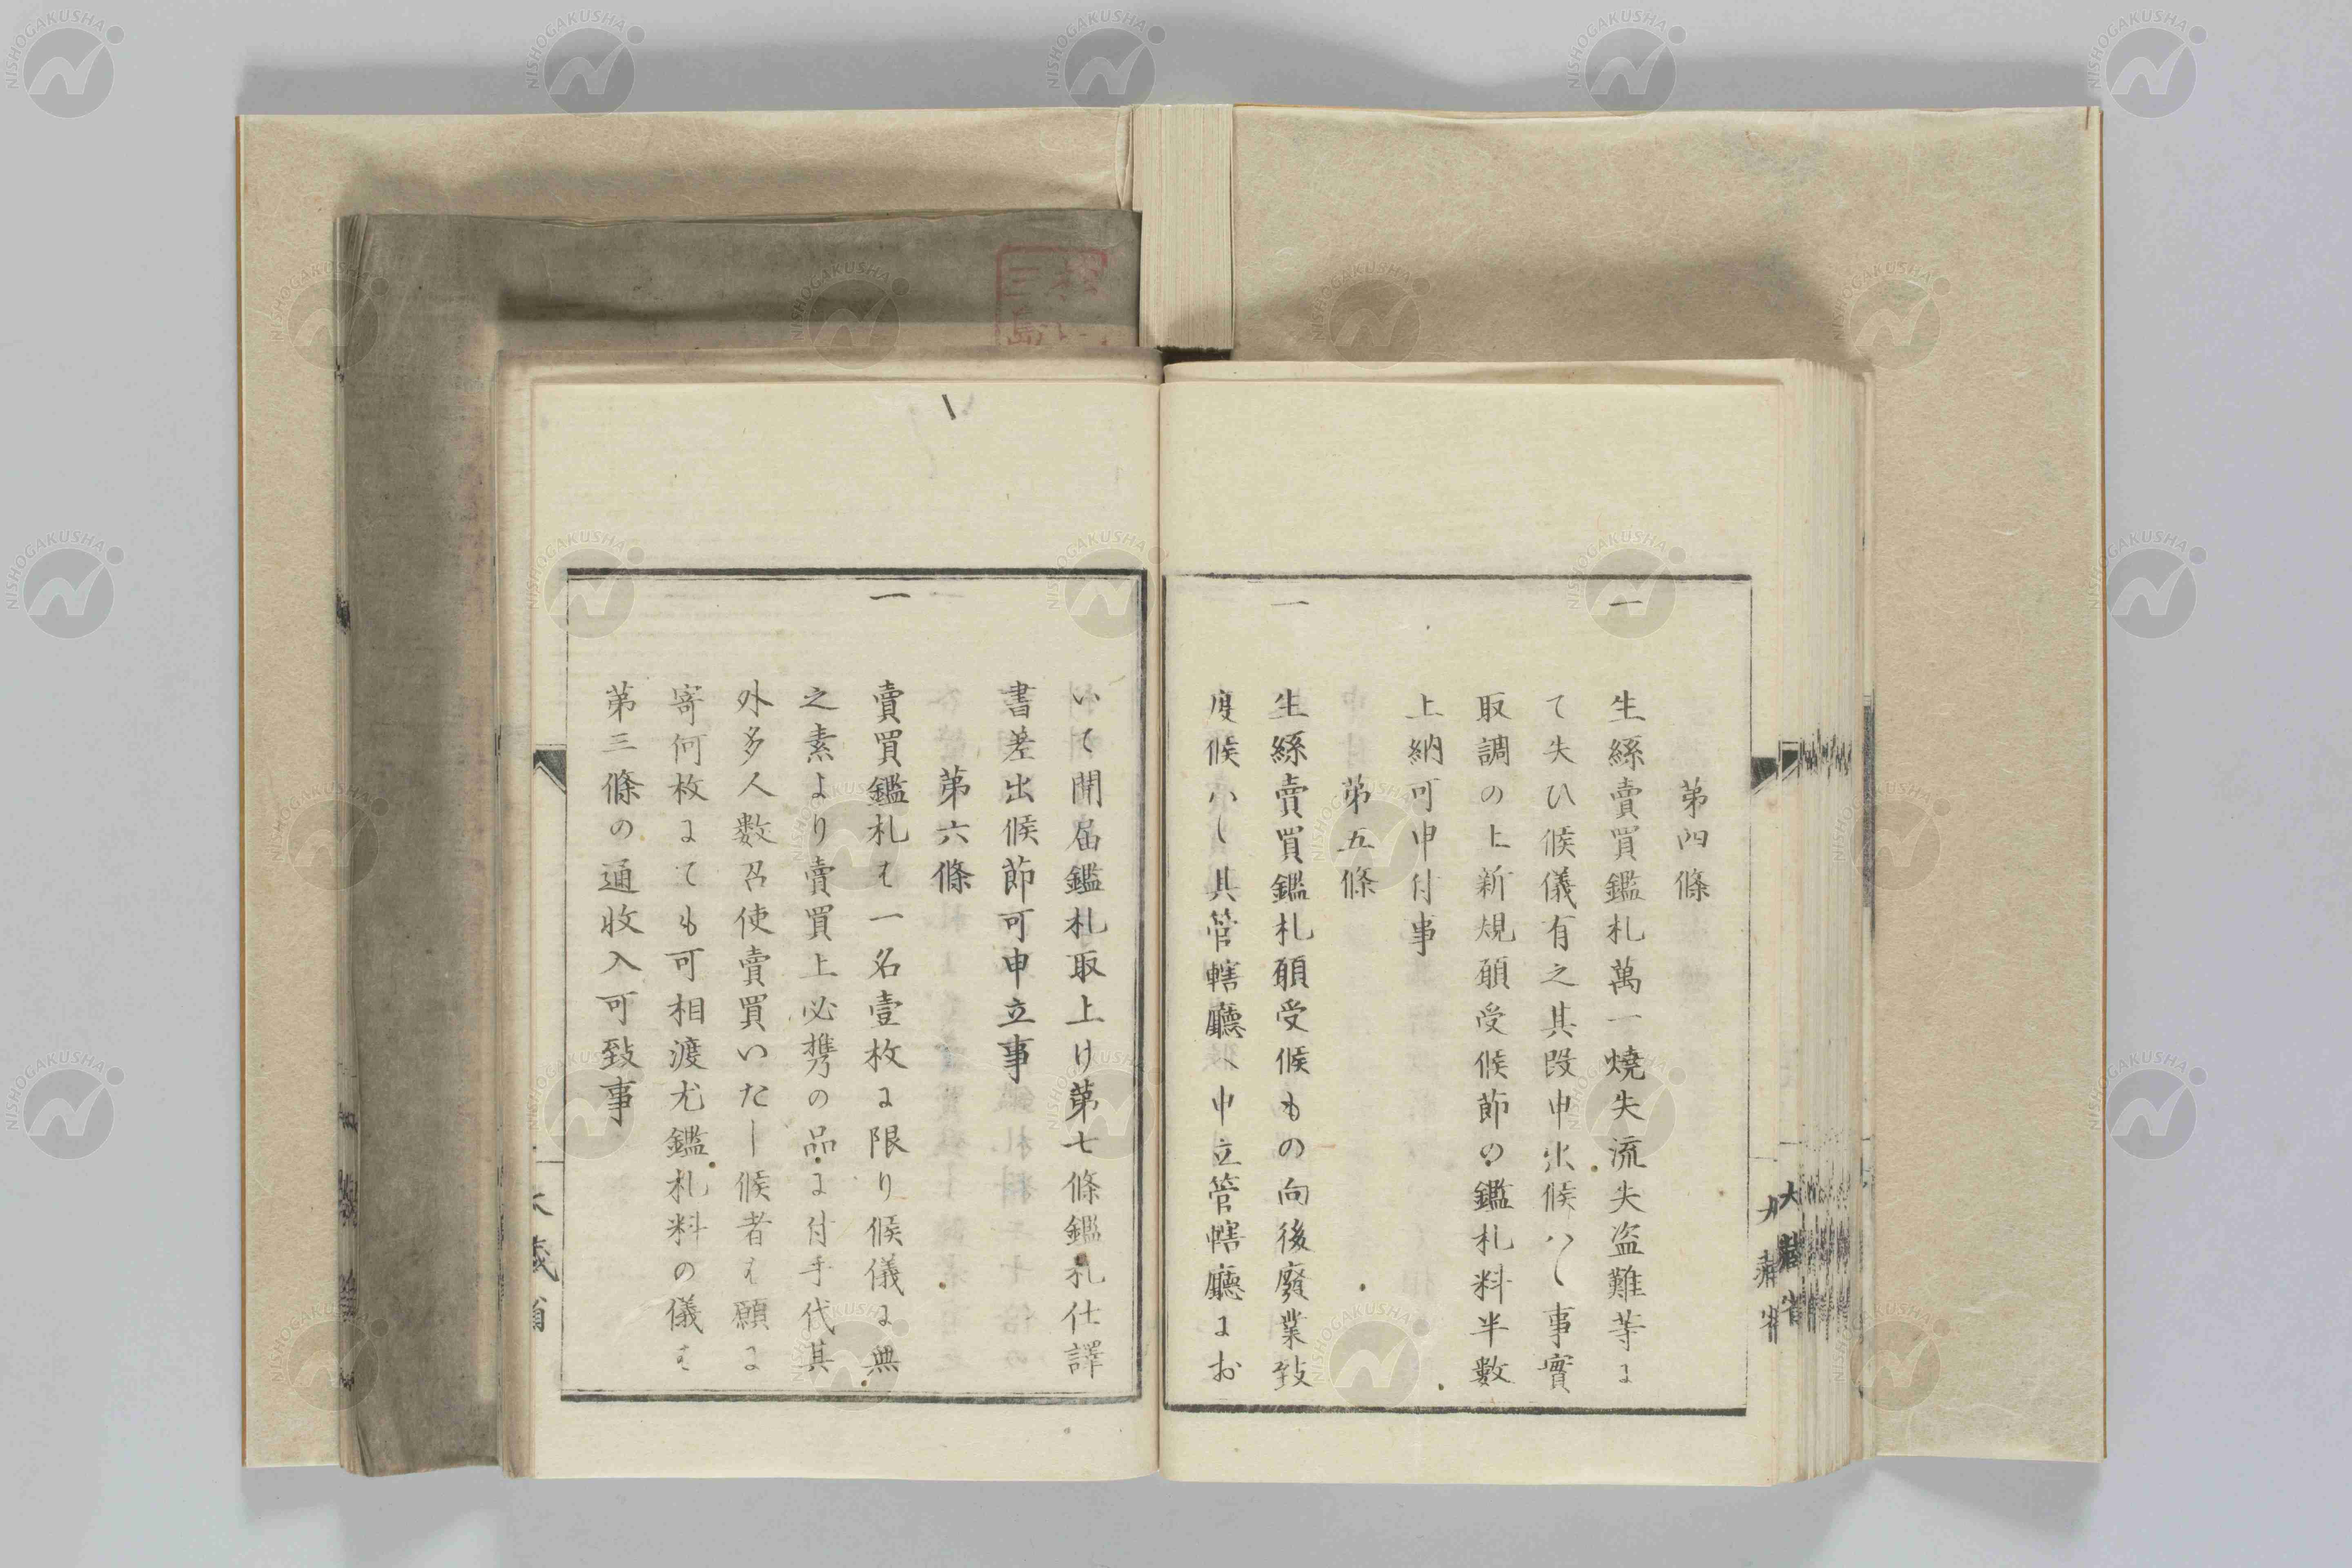 第四條
一 生絲賣買鑑札萬一燒失流失盗難等に
て失ひ候儀有之其段申出候ハヽ事實
取調の上新規願受候節の鑑札料半數
上納可申付事
第五條
一 生絲賣買鑑札願受候もの向後廢業致
度候ハヽ其管轄廳へ申立管轄廳にお
いて開届鑑札取上け第七條鑑札仕譯
書差出候節可申立事
第六條
一 賣買鑑札は一名壹枚に限り候儀に無
之素より賣買上必携の品に付手代其
外多人數召使賣買いたし候者は願に
寄何枚にても可相渡尤鑑札料の儀は
第三條の通收入可致事
大藏省
NISHOGAKUSHA